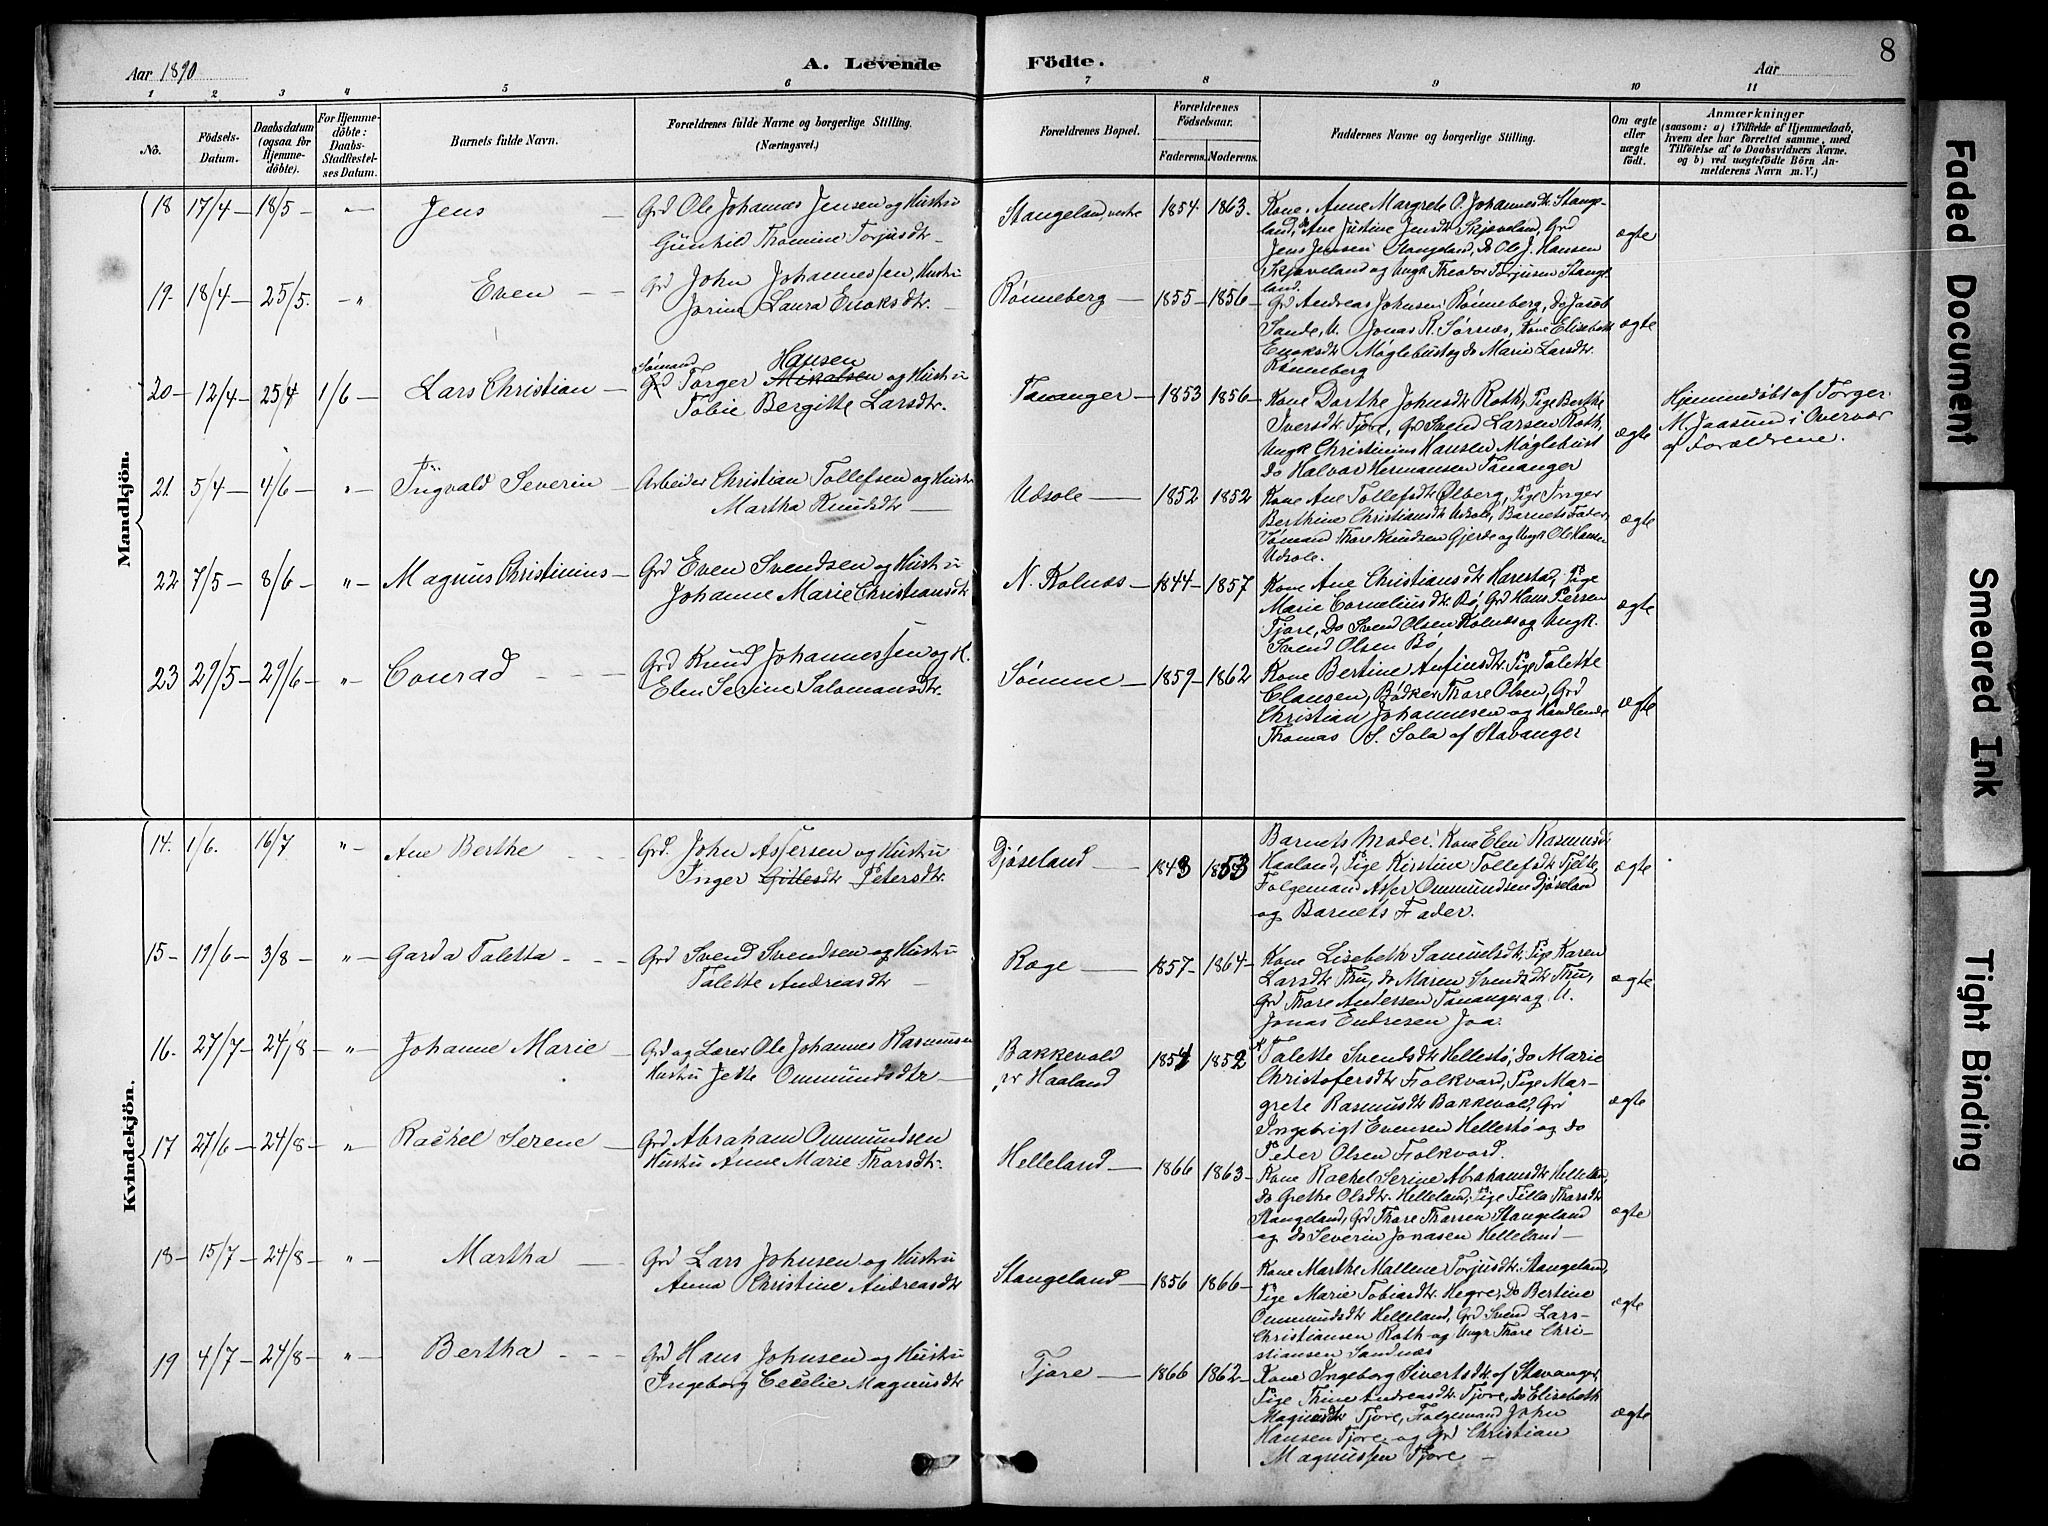 Aar 1890
A. Levende
Födte.
Aar
8
1 2 3 4 5 6 7 8 9 10 11
No.
Födsels-
Datum.
Daabsdatum
(ogsaa for
Hjemme-
döbte).
For Hjemme-
döbte:
Daabs-
Stadfæstel-
ses Datum.
Barnets fulde Navn.
Forældrenes fulde Navne og borgerlige Stilling.
(Næringsvei.)
Forældrenes Bopæl.
Forældrenes
Födselsaar.
Faderens. Moderens.
Faddernes Navne og borgerlige Stilling.
Om ægte
eller
uægte
födt.
Anmærkninger
(saasom: a) i Tilfælde af Hjemmedaab,
hvem der har forrettet samme, med
Tilföielse af to Daabsvidners Navne.
og b) ved uægtefödte Börn An-
melderens Navn m. V.)
Mandkjön.
18 17/4 – 18/5 – " – Jens –
Grd Ole Johannes Jensen og Hustru
Gunhild Thomine Torjusdtr –
Stangeland vestre 1854 – 1863.
Kone Anne Margrete O. Johannesdtr Stange-
land, do Ane Justine Jensdtr Skjæveland, Grd
Jens Jensen Stangeland, do Ole J. Hansen
Skjæveland og Ungk Theodor Torjusen Stange-
land.
ægte
19 – 18/4 – 25/5. – " Even –
Grd John Johannessen, Hustru
Jorina Laura Enoksdtr. –
Rønneberg – 1855 – 1856 –
Grd Andreas Johnsen Rønneberg, do Jacob
Sande, U. Jonas R. Sørnæs, Kone Elisabeth
Enoksdtr Møglebust og do Marie Larsdtr.
Rønneberg
ægte
20 – 12/4 – 25/4 1/6 – Lars Christian –
Sømand Hansen
Grd Torger Mikalsen og Hustru
Tobie Bergitte Larsdtr.
Tananger – 1853 1856 –
Kone Dorthe Johnsdtr Roth, Pige Berthe
Iversdtr Tjore, Grd Svend Larsen Roth,
Ungk Christinius Hansen Møglebust
do Halvor Hermansen Tananger
ægte
Hjemmedøbt af Torger
M. Jaasund i Overvær
af Forældrene.
21. 5/4 – 4/6 – " – Ingvald Severin –
Arbeider Christian Tollefsen og Hustru
Martha Knudsdtr –
Udsole – 1852 1852
Kone Ane Tollefsdtr Ølberg, Pige Inger
Berthine Christiansdtr Udsole, Barnets Fader,
Sømand Thore Knudsen Gjerde og Ungk Ole Hansen
Udsole.
ægte
22 7/5 – 8/6 – " – Magnus Christinius –
Grd Even Svendsen og Hustru
Johanne Marie Christiansdtr
N. Kolnæs – 1844 – 1857
Kone Ane Christiansdtr Harestad, Pige
Marie Corneliusdtr. Bø, Grd Hans Persen
Tjore, Do Svend Olsen Kolnæs og Ungk.
Svend Olsen Bø
ægte
23 29/5 – 29/6 – " – Conrad –
Grd Knud Johannessen og H.
Elen Serine Salomonsdtr.
Sømme – 1859 – 1862
Kone Bertine Anfinsdtr, Pige Talette
Clausen, Bødker Thore Olsen, Grd
Christian Johannesen og Handlende
Thomas S. Sola af Stavanger
ægte
Kvindekjön.
14. 1/6. 16/7 " – Ane Berthe –
Grd. John Assersen og Hustru
Inger Gittesdtr Petersdtr.
Djøseland – 1843 1853
Barnets Moder, Kone Elen Rasmusdtr
Haaland, Pige Kirstine Tollefsdtr Tjelte,
Folgemand Asser Ommundsen Djøseland
og Barnets Fader.
ægte
15 – 11/6 – 3/8 – " – Garda Taletta –
Grd Svend Svendsen og Hustru
Talette Andreasdtr –
Røge – 1857 – 1864 –
Kone Lisebeth Samuelsdtr, Pige Karen
Larsdtr Thu, do Maren Svendsdtr Thu,
Grd Thore Andersen Tananger og U.
Jonas Endresen Joa.
ægte
16. 27/7 – 24/8 – " – Johanne Marie –
Grd og Lærer Ole Johannes Rasmussen
Hustru Jette Ommundsdtr –
Bakkevold
pr Haaland
1854 1852
K Talette Svendsdtr Hellestø, do Marie
Christofersdtr Folkvord, Pige Mar-
grete Rasmusdtr Bakkevold, Grd
Ingebrigt Evensen Hellestø og do
Peder Olsen Folkvord.
ægte
17 27/6 – 24/8 – " Rachel Serene –
Grd Abraham Ommundsen
Hustru Anne Marie Thorsdtr.
Helleland – 1866 1863 –
Kone Rachel Serine Abrahamsdtr Helleland,
do Grethe Olsdtr. Helleland, Pige Tilla Thorsdtr
Stangeland, Grd Thore Thorsen Stangeland
og do Severin Jonasen Helleland –
ægte
18 – 15/7 – 24/8 – " – Martha –
Grd Lars Johnsen og Hustru
Anna Christine Andreasdtr
Stangeland – 1856 1866 –
Kone Marthe Mallene Torjusdtr Stangeland,
Pige Marie Tobiasdtr. Hegre, Do Bertine
Ommundsdtr Helleland, Grd Svend Lars-
Christiansen Roth og Ungk Thore Chri-
stiansen Sandnæs
ægte
19 4/7 – 24/8 – " – Bertha –
Grd Hans Johnsen og Hustru
Ingeborg Cecilie Magnusdtr
Tjore – 1866 1862 –
Kone Ingeborg Sivertsdtr af Stavanger,
Pige Thine Andreasdtr Tjore, do Elisabeth
Magnusdtr Tjore, Folgemand John
Hansen Tjore og Grd Christian
Magnussen Tjore –
ægte
Faded Document
Smeared Ink
Tight Binding